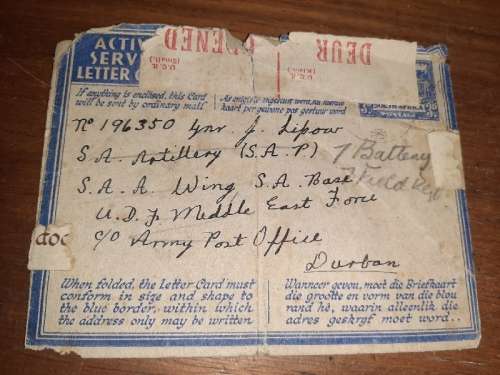 ACTIVE
SERV
LETTER C
OPENED
U.C.R.
DEUR
U.C.R.
SOUTH AFRICA
POSTAGE
If anything is enclosed, this Card
will be sent by ordinary mail
As enigiets ingesluit word, sal hierdie
kaart per gewone pos gestuur word
No 196350 Gnr. J. Lipow
S.A. Artillery (S.A.P)
7 Battery
Field Rgt.
S.A.A. Wing S.A. Base
U.D.F. Middle East Force
c/o Army Post Office
Durban
When folded, the Letter Card must
conform in size and shape to
the blue border, within which
the address only may be written
Wanneer gevou, moet die Briefkaart
die grootte en vorm van die blou
rand hê, waarin alleenlik die
adres geskryf moet word...